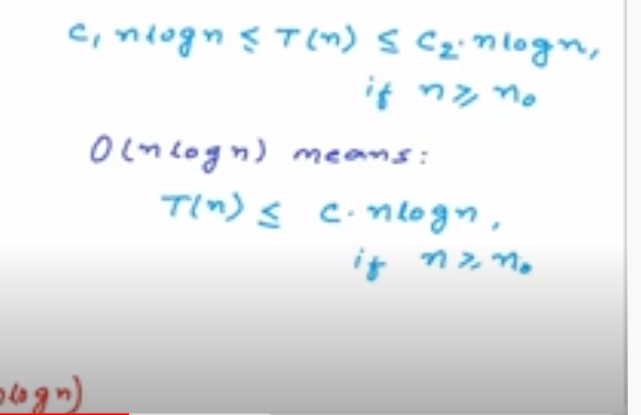 c₁ nlogn ≤ T(n) ≤ c₂·nlogn,
if n ≥ n₀
O(nlogn) means:
T(n) ≤ c·nlogn,
if n ≥ n₀
logn)